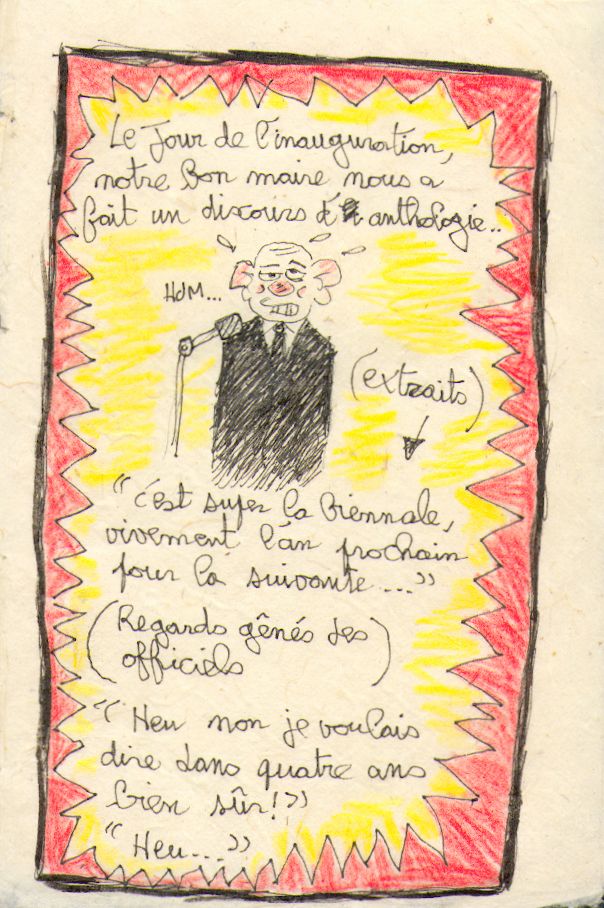 Le Jour de l'inauguration,
notre bon maire nous a
fait un discours d'anthologie..
HUM...
(extraits)
"c'est super la biennale,
vivement l'an prochain
pour la suivante..."
(Regards gênés des
officiels)
"Heu non je voulais
dire dans quatre ans
bien sûr!"
"Heu..."